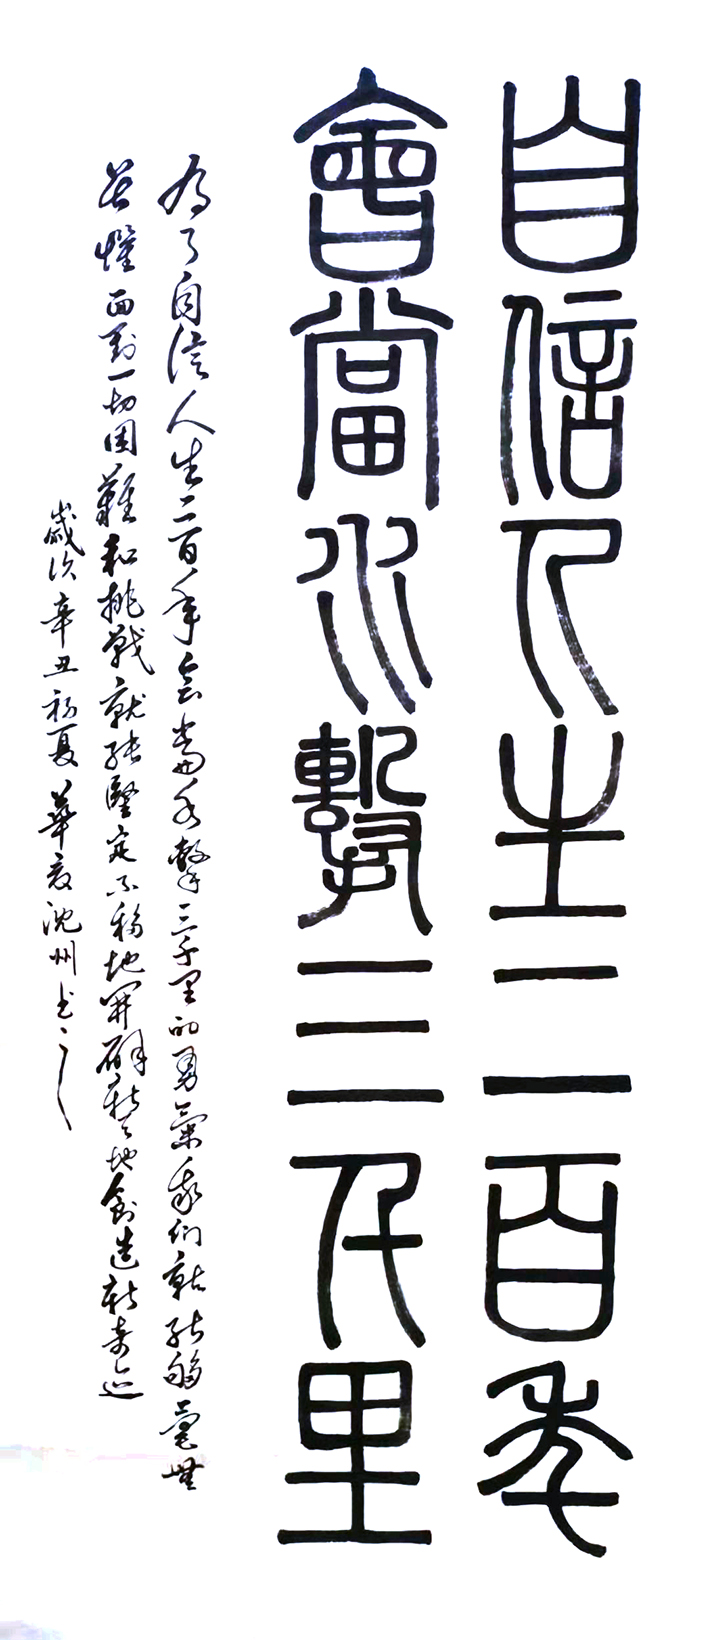 自信人生二百年
會當水擊三千里
为了自信人生二百年会当水擊三千里的勇氣我们就能够毫無
畏懼面對一切困難和挑战就能堅定不移地開闢新天地創造新奇迹
歲次辛丑初夏華彦沈州书之